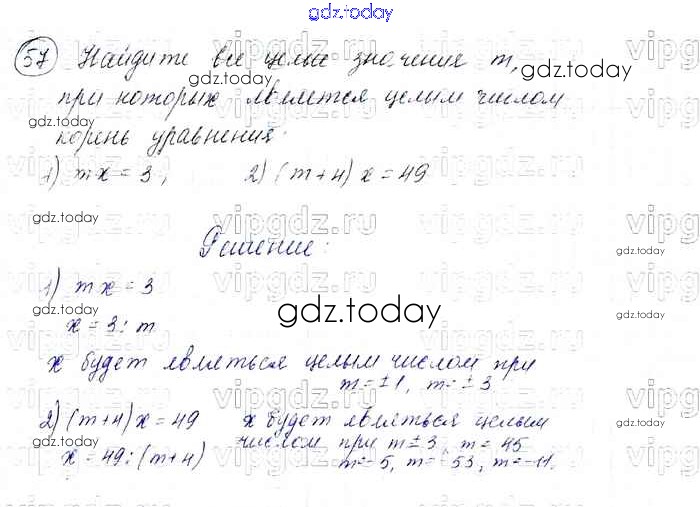 gdz.today
57 Найдите все целые значения m,
gdz.today gdz.today
при которых является целым числом
gdz.today
корень уравнения:
1) mx = 3; 2) (m+4) x = 49
gdz.today gdz.today
vipgdz.ru
Решение:
gdz.today gdz.today
1) mx = 3
gdz.today
x = 3 : m
x будет являться целым числом при
m = ±1, m = ±3
2) (m+4)x = 49 x будет являться целым
gdz.today числом при m ± 3, m = 45 gdz.today
x = 49 : (m+4) m = -5, m = -53, m = -11.